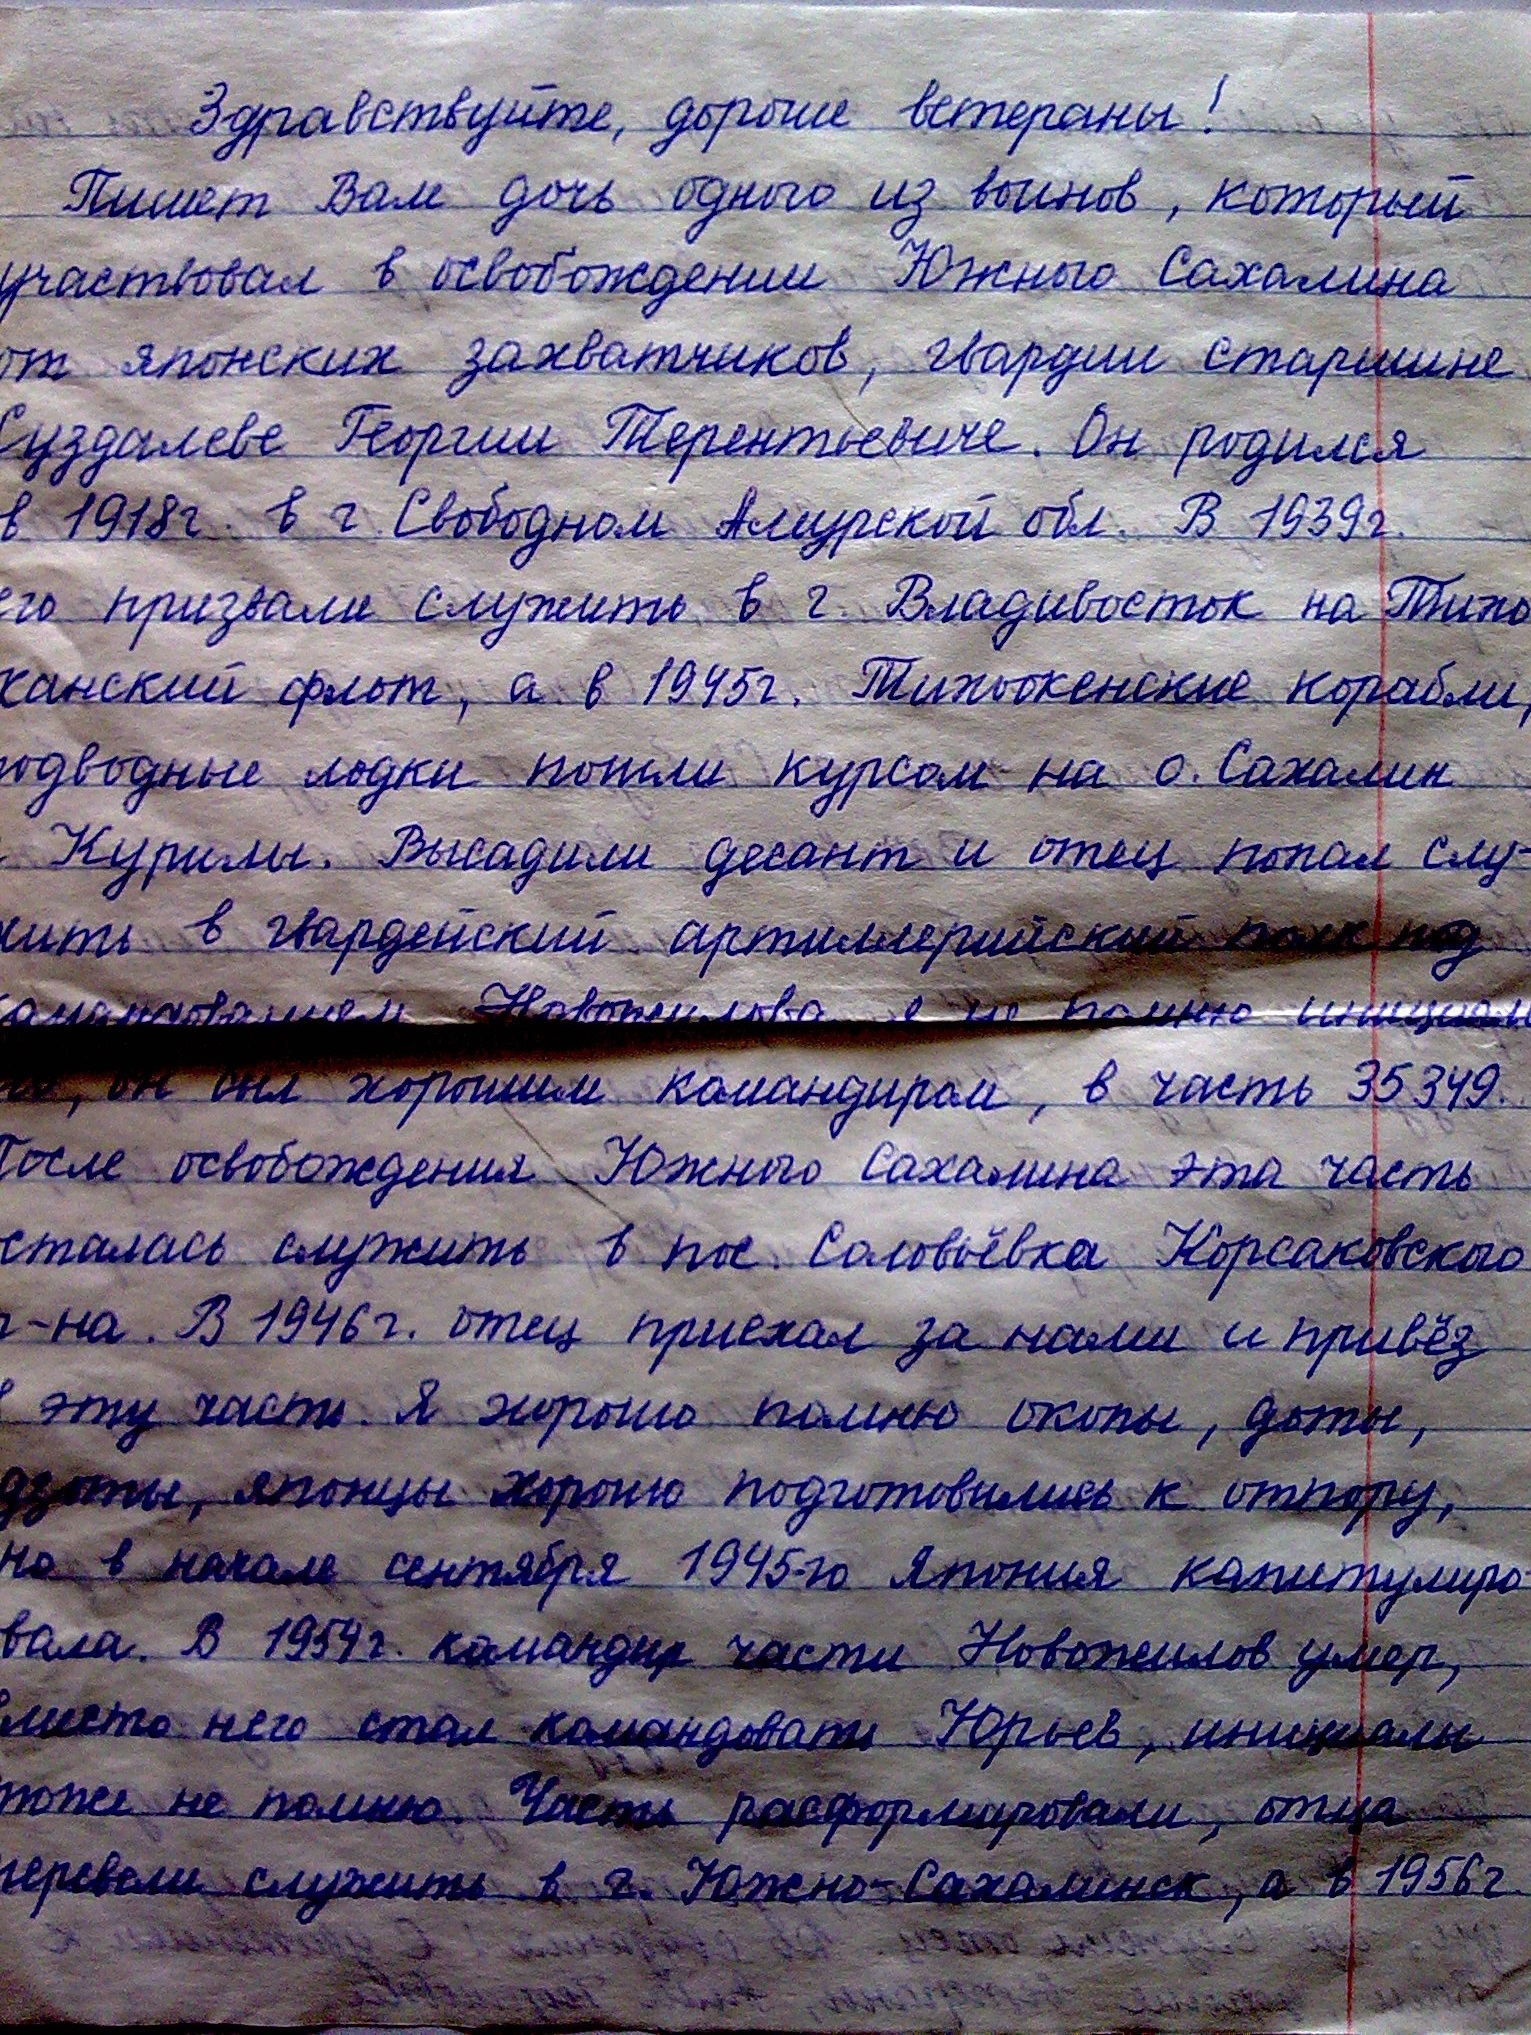 Здравствуйте, дорогие ветераны!
Пишет Вам дочь одного из воинов, который
участвовал в освобождении Южного Сахалина
от японских захватчиков, гвардии старшине
Суздалеве Георгии Терентьевиче. Он родился
в 1918г. в г. Свободном Амурской обл. В 1939г.
его призвали служить в г. Владивосток на Тихо
кеанский флот, а в 1945г. Тихоокенские корабли,
подводные лодки пошли курсом на о. Сахалин
Курилы. Высадили десант и отец попал слу-
жить в гвардейский артиллерийский полк под
командованием Новожилова, я не помню инициалы
он был хорошим командиром, в часть 35349.
После освобождения Южного Сахалина эта часть
осталась служить в пос. Соловьёвка Корсаковского
р-на. В 1946г. отец приехал за нами и привёз
в эту часть. Я хорошо помню окопы, доты,
дзоты, японцы хорошо подготовились к отпору,
но в начале сентября 1945-го Япония капитулиро-
вала. В 1954г. командир части Новожилов умер,
вместо него стал командовать Юрьев, инициалы
тоже не помню. Часть расформировали, отца
перевели служить в г. Южно-Сахалинск, а в 1956г